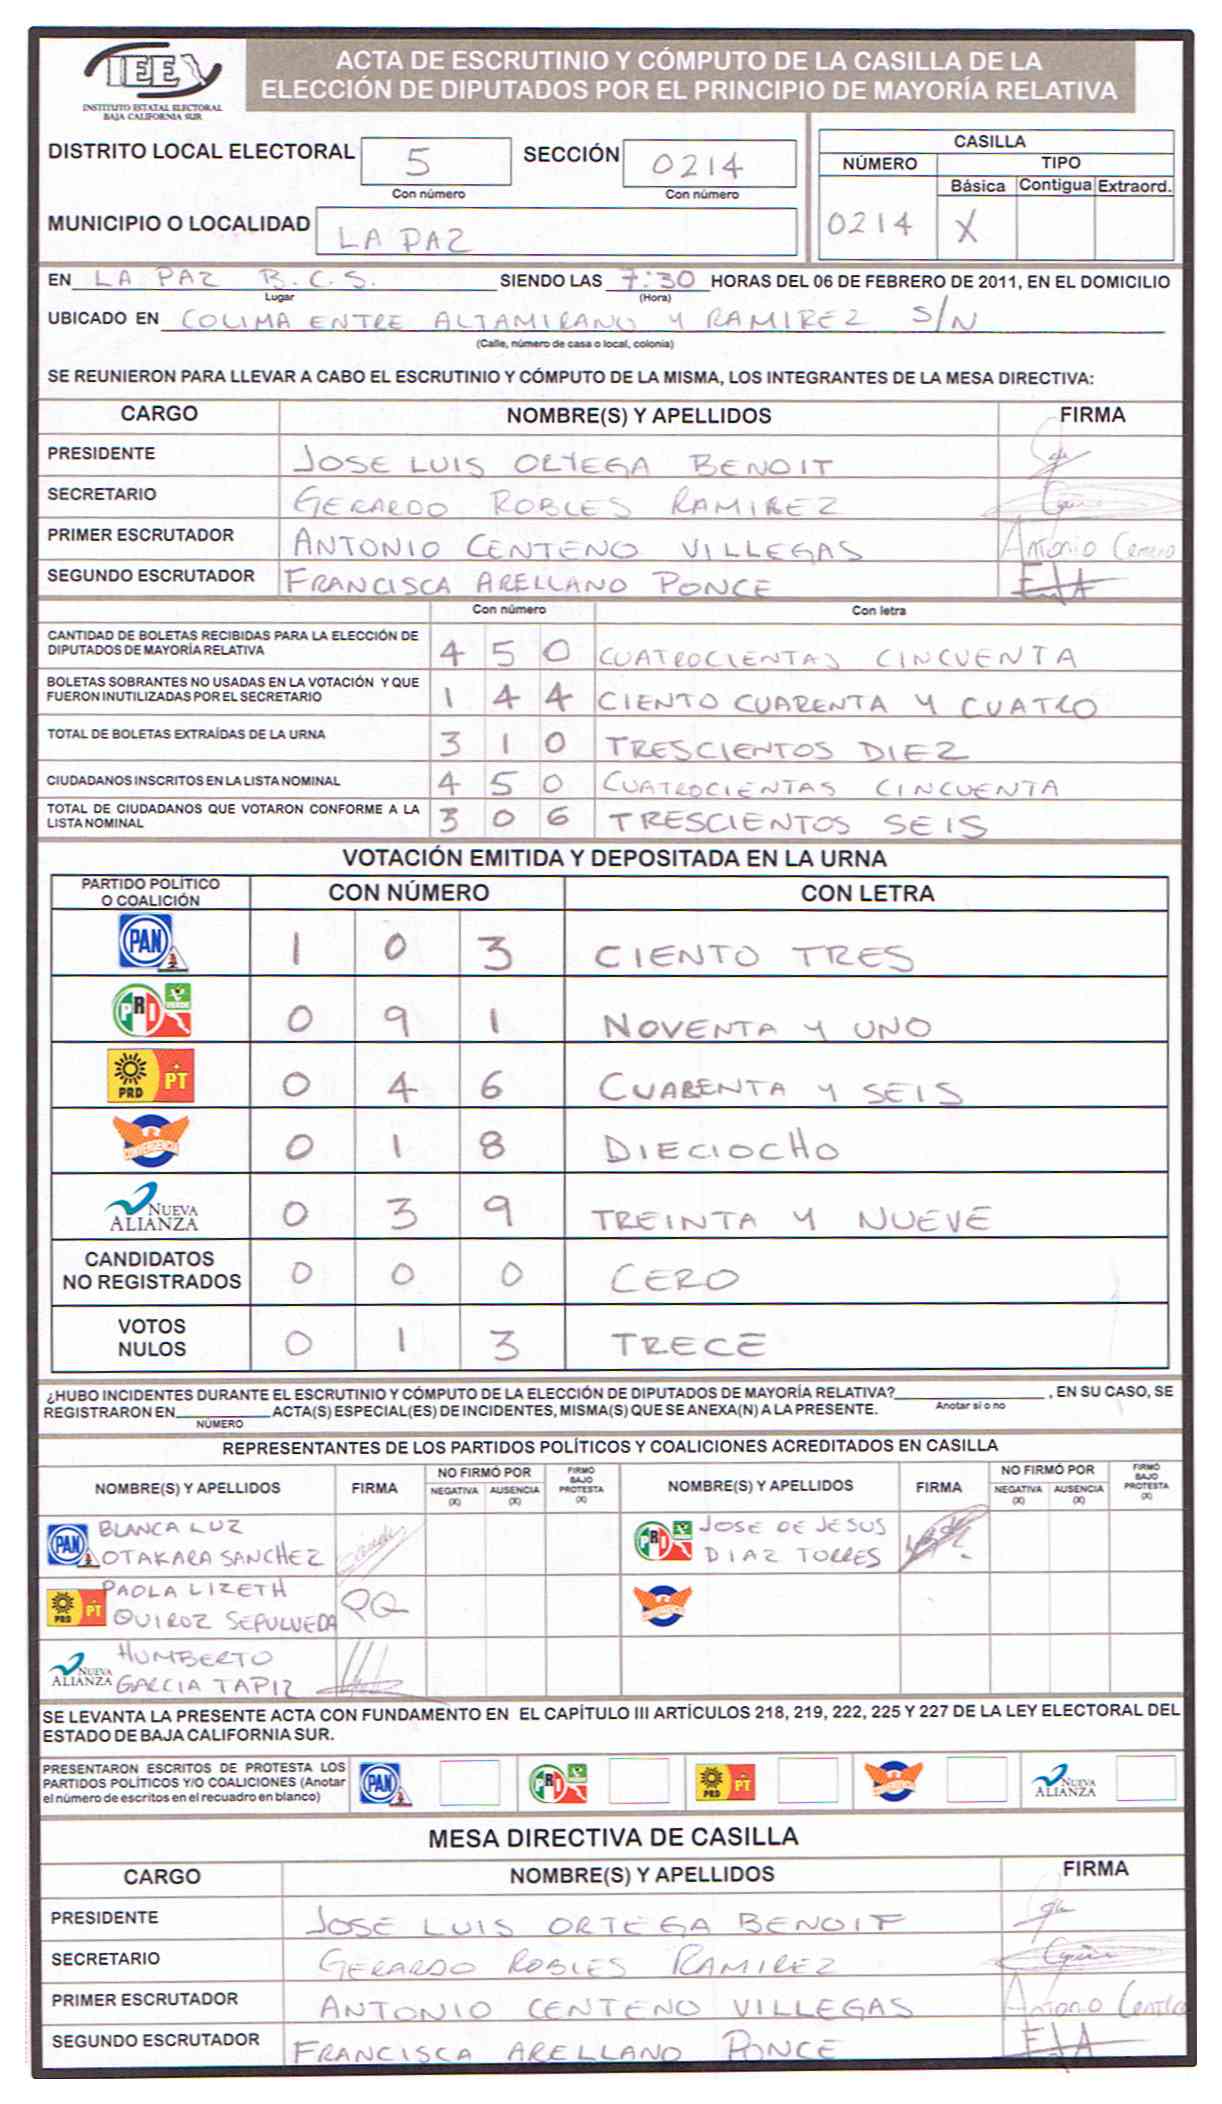 IEE
INSTITUTO ESTATAL ELECTORAL
BAJA CALIFORNIA SUR
ACTA DE ESCRUTINIO Y CÓMPUTO DE LA CASILLA DE LA
ELECCIÓN DE DIPUTADOS POR EL PRINCIPIO DE MAYORÍA RELATIVA
DISTRITO LOCAL ELECTORAL 5 SECCIÓN 0214
Con número Con número
MUNICIPIO O LOCALIDAD LA PAZ
CASILLA
NÚMERO TIPO
Básica Contigua Extraord.
0214 X
EN LA PAZ B.C.S. SIENDO LAS 7:30 HORAS DEL 06 DE FEBRERO DE 2011, EN EL DOMICILIO
Lugar (Hora)
UBICADO EN COLIMA ENTRE ALTAMIRANO Y RAMIREZ S/N
(Calle, número de casa o local, colonia)
SE REUNIERON PARA LLEVAR A CABO EL ESCRUTINIO Y CÓMPUTO DE LA MISMA, LOS INTEGRANTES DE LA MESA DIRECTIVA:
CARGO NOMBRE(S) Y APELLIDOS FIRMA
PRESIDENTE JOSE LUIS ORTEGA BENOIT
SECRETARIO GERARDO ROBLES RAMIREZ
PRIMER ESCRUTADOR ANTONIO CENTENO VILLEGAS Antonio Centeno
SEGUNDO ESCRUTADOR FRANCISCA ARELLANO PONCE
Con número Con letra
CANTIDAD DE BOLETAS RECIBIDAS PARA LA ELECCIÓN DE
DIPUTADOS DE MAYORÍA RELATIVA 4 5 0 CUATROCIENTAS CINCUENTA
BOLETAS SOBRANTES NO USADAS EN LA VOTACIÓN Y QUE
FUERON INUTILIZADAS POR EL SECRETARIO 1 4 4 CIENTO CUARENTA Y CUATRO
TOTAL DE BOLETAS EXTRAÍDAS DE LA URNA 3 1 0 TRESCIENTOS DIEZ
CIUDADANOS INSCRITOS EN LA LISTA NOMINAL 4 5 0 CUATROCIENTAS CINCUENTA
TOTAL DE CIUDADANOS QUE VOTARON CONFORME A LA
LISTA NOMINAL 3 0 6 TRESCIENTOS SEIS
VOTACIÓN EMITIDA Y DEPOSITADA EN LA URNA
PARTIDO POLÍTICO
O COALICIÓN CON NÚMERO CON LETRA
PAN 1 0 3 CIENTO TRES
PRI VERDE 0 9 1 NOVENTA Y UNO
PRD PT 0 4 6 CUARENTA Y SEIS
CONVERGENCIA 0 1 8 DIECIOCHO
NUEVA
ALIANZA 0 3 9 TREINTA Y NUEVE
CANDIDATOS
NO REGISTRADOS 0 0 0 CERO
VOTOS
NULOS 0 1 3 TRECE
¿HUBO INCIDENTES DURANTE EL ESCRUTINIO Y CÓMPUTO DE LA ELECCIÓN DE DIPUTADOS DE MAYORÍA RELATIVA? , EN SU CASO, SE
Anotar si o no
REGISTRARON EN ACTA(S) ESPECIAL(ES) DE INCIDENTES, MISMA(S) QUE SE ANEXA(N) A LA PRESENTE.
NÚMERO
REPRESENTANTES DE LOS PARTIDOS POLÍTICOS Y COALICIONES ACREDITADOS EN CASILLA
NOMBRE(S) Y APELLIDOS FIRMA NO FIRMÓ POR NEGATIVA (X) AUSENCIA (X) FIRMÓ BAJO PROTESTA (X) NOMBRE(S) Y APELLIDOS FIRMA NO FIRMÓ POR NEGATIVA (X) AUSENCIA (X) FIRMÓ BAJO PROTESTA (X)
PAN BLANCA LUZ
OTAKARA SANCHEZ
PRI JOSE DE JESUS
DIAZ TORRES
PRD PT PAOLA LIZETH
QUIROZ SEPULVEDA PQ
CONVERGENCIA
NUEVA ALIANZA HUMBERTO
GARCIA TAPIZ
SE LEVANTA LA PRESENTE ACTA CON FUNDAMENTO EN EL CAPÍTULO III ARTÍCULOS 218, 219, 222, 225 Y 227 DE LA LEY ELECTORAL DEL
ESTADO DE BAJA CALIFORNIA SUR.
PRESENTARON ESCRITOS DE PROTESTA LOS
PARTIDOS POLÍTICOS Y/O COALICIONES (Anotar
el número de escritos en el recuadro en blanco)
PAN PRI PRD PT CONVERGENCIA NUEVA ALIANZA
MESA DIRECTIVA DE CASILLA
CARGO NOMBRE(S) Y APELLIDOS FIRMA
PRESIDENTE JOSE LUIS ORTEGA BENOIT
SECRETARIO GERARDO ROBLES RAMIREZ
PRIMER ESCRUTADOR ANTONIO CENTENO VILLEGAS Antonio Centeno
SEGUNDO ESCRUTADOR FRANCISCA ARELLANO PONCE